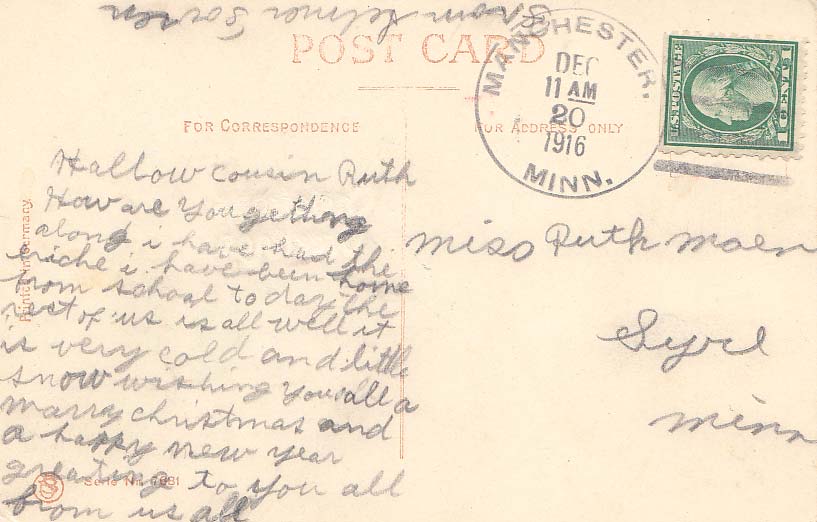 From Selmer Soren
POST CARD
FOR CORRESPONDENCE
FOR ADDRESS ONLY
MANCHESTER,
DEC
11 AM
20
1916
MINN.
U.S. POSTAGE
1 CENT 1
Hallow cousin Ruth
How are you getting
along i have had the
i have been home
from school to day the
rest of us is all well it
is very cold and little
snow wishing you all a
marry christmas and
a happy new year
greating to you all
from us all
Miss Ruth Moen
Minn
Printed in Germany.
Serie Nr. 7681